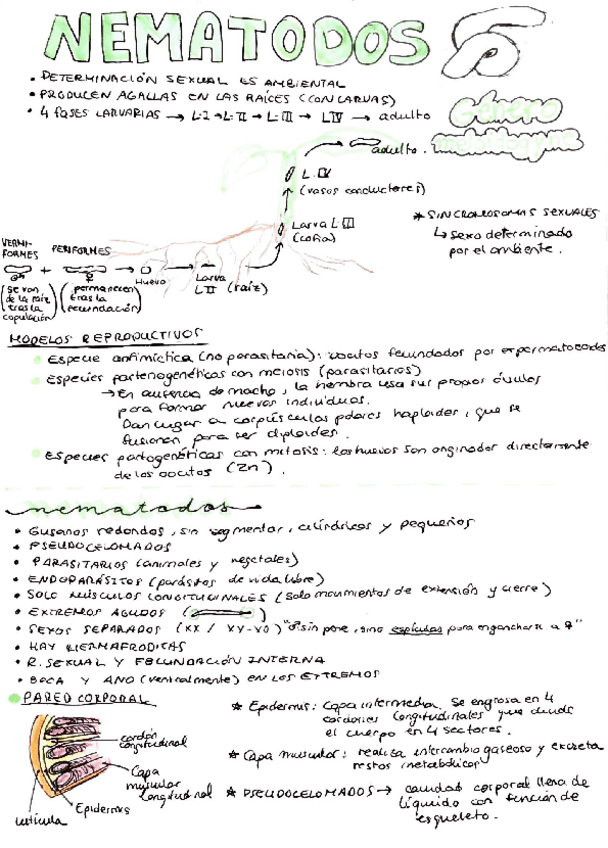 NEMATODOS
• DETERMINACIÓN SEXUAL ES AMBIENTAL
• PRODUCEN AGALLAS EN LAS RAÍCES (CON LARVAS)
• 4 FASES LARVARIAS → L-I → L-II → L-III → L IV → adulto
Género
meloidogyne
adulto.
L.IV
(vasos conductores)
Larva L-III
(cofia)
* SIN CROMOSOMAS SEXUALES
↳ Sexo determinado
por el ambiente.
VERMI-
FORMES
PERIFORMES
♂ + ♀ → Huevo → Larva
LII (raíz)
(se van
de la raíz
tras la
copulación)
(permanecen
tras la
fecundación)
MODELOS REPRODUCTIVOS
Especie anfimíctica (no parasitaria): oocitos fecundados por espermatozoides
Especies partenogenéticas con meiosis (parasitarios)
→ En ausencia de macho, la hembra usa sus propios óvulos
para formar nuevos individuos.
Dan lugar a corpúsculos polares haploides, que se
fusionan para ser diploides.
Especies partogenéticas con mitosis: los huevos son originados directamente
de los oocitos (2n).
nematodos
• Gusanos redondos, sin segmentar, cilíndricos y pequeños
• PSEUDOCELOMADOS
• PARASITARIOS (animales y vegetales)
• ENDOPARÁSITOS (parásitos de vida libre)
• SOLO MÚSCULOS LONGITUDINALES (solo movimientos de extensión y cierre)
• EXTREMOS AGUDOS ( )
• SEXOS SEPARADOS (XX / XY-X0) "♂ sin pene, sino espículas para engancharse a ♀"
• HAY HERMAFRODITAS
• R. SEXUAL Y FECUNDACIÓN INTERNA
• BOCA Y ANO (ventralmente) EN LOS EXTREMOS
PARED CORPORAL
cordón
longitudinal
Capa
muscular
longitudinal
Epidermis
cutícula
* Epidermis: Capa intermedia. Se engrosa en 4
cordones longitudinales que divide
el cuerpo en 4 sectores.
* Capa muscular: realiza intercambio gaseoso y excreta
restos metabólicos
* PSEUDOCELOMADOS → cavidad corporal llena de
líquido con función de
esqueleto.